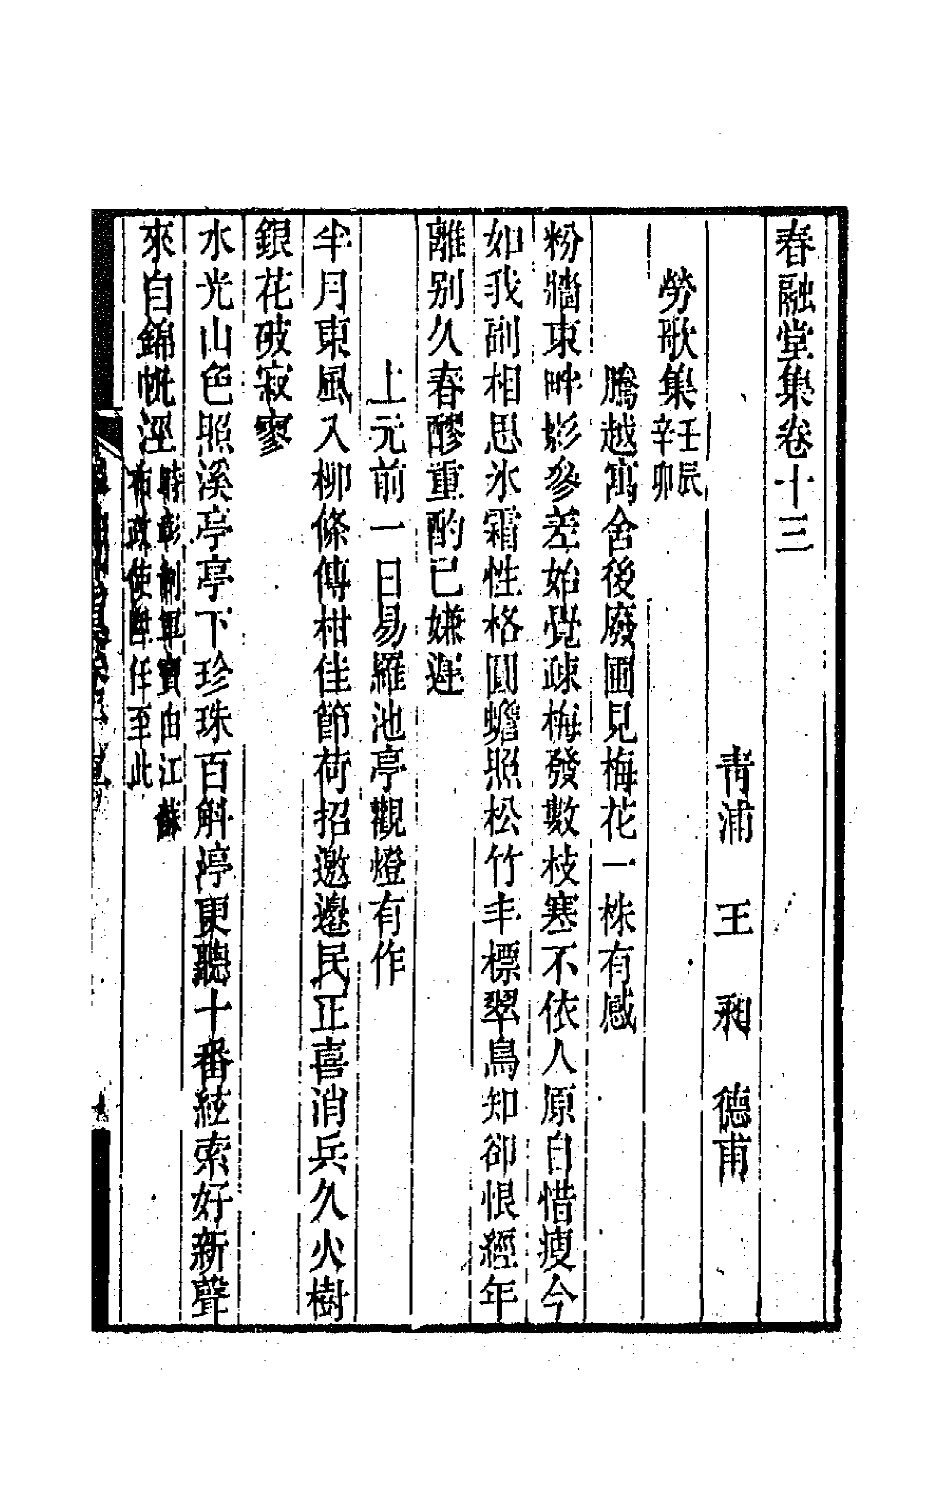 春融堂集卷十三
青浦 王 昶 德甫
勞歌集辛卯壬辰
騰越寓舍後廢圃見梅花一株有感
粉牆東畔影參差始覺疎梅發數枝寒不依人原自惜瘦今
如我副相思氷霜性格圓蟾照松竹丰標翠鳥知卻恨經年
離别久春醪重酌已嫌遲
上元前一日易羅池亭觀燈有作
半月東風入柳條傳柑佳節荷招邀邊民正喜消兵久火樹
銀花破寂寥
水光山色照溪亭亭下珍珠百斛渟更聽十番絃索好新聲
來自錦帆涇時彰制軍寶由江蘇布政使陞任至此